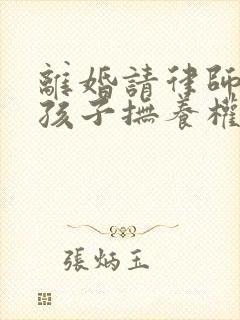 離婚請律師
孩子撫養權
張炳玉